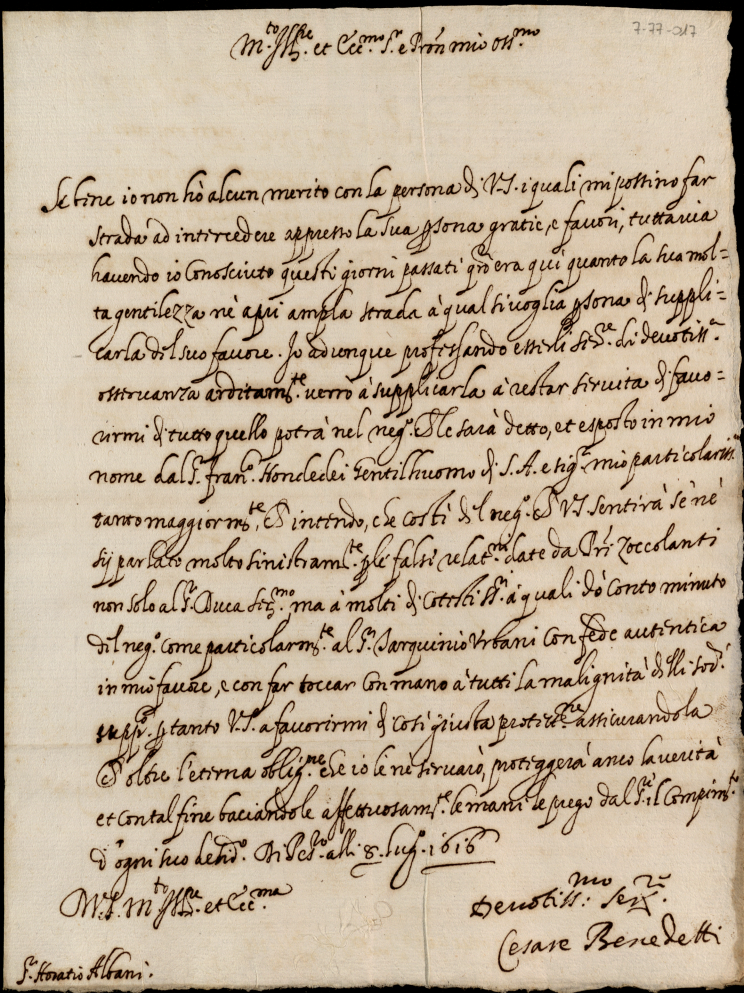 7-77-017
M.to Ill.re et Ecc.mo S.r e Pron mio oss.mo
Se bene io non hò alcun merito con la persona di V.S. i quali mi possino far
strada ad intercedere appresso la sua psona gratie, e favori, tuttavia
havendo io Conosciuto questi giorni passati qñ era qui quanto la sua mol=
ta gentilezza nè apri ampla strada à qual si voglia psona di suppli=
carla del suo favore. Io adunque professando esserli di devotiss.a
osservanza arditam.te verrò à supplicarla à restar servita di favo=
rirmi di tutto quello potrà nel neg.o le sarà detto, et esposto in mio
nome dal S.r Fran.o Hondedei Gentilhuomo di S.A. e Sig.r mio particolariss.o
tanto maggiorm.te, intendo, che costì del neg.o V.S. sentirà sè nè
sij parlato molto sinistram.te p le false relat.ni date da Pri Zoccolanti
non solo al S.r Duca Ser.mo ma à molti di cotesti SS.ri à quali dò Conto minuto
del neg.o come particolarm.te al S.r Tarquinio Urbani con fede autentica
in mio favore, e con far toccar con mano à tutti la malignità delli sod.i
supp.co p tanto V.S. a favorirmi di così giusta protet.ne assicurandola
oltre l'eterna oblig.ne che io le ne servarò, protteggerà anco la verità
et con tal fine baciandole affettuosam.te le mani le prego dal S.re il Compim.to
d'ogni suo desid.o Di Pes.o alli 8. lug.o 1616
D.V.S. M.to Ill.re et Ecc.ma
Devotiss.mo Ser.re
Cesare Benedetti
S.r Horatio Albani.